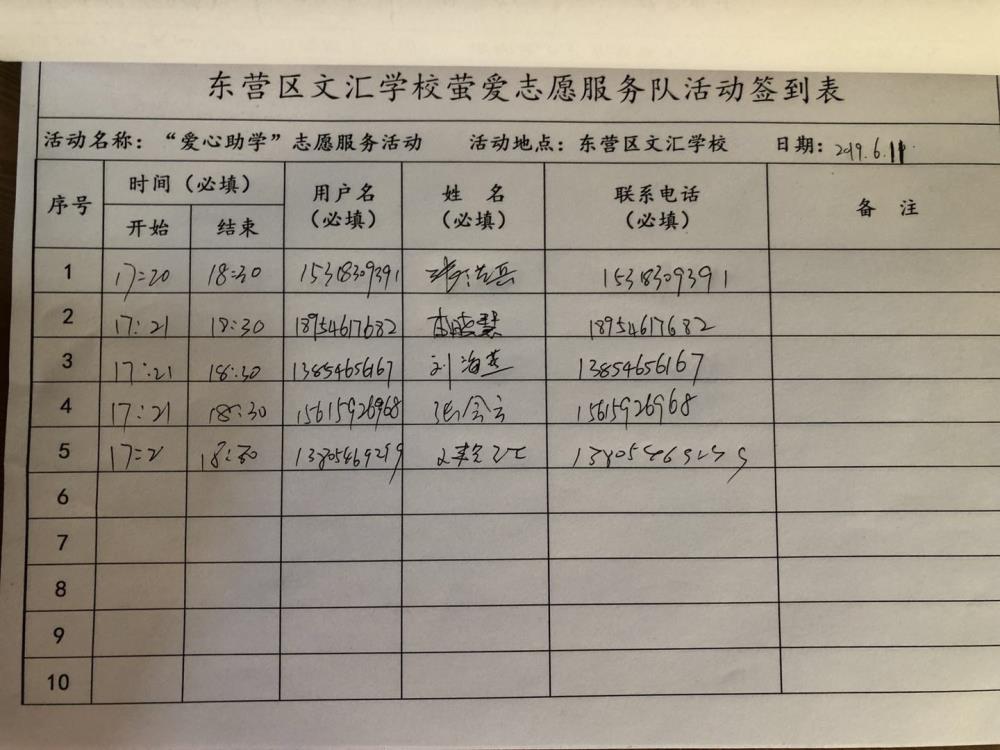 东营区文汇学校萤爱志愿服务队活动签到表
活动名称：“爱心助学”志愿服务活动 活动地点：东营区文汇学校 日期：2019.6.11
序号 时间（必填） 用户名（必填） 姓 名（必填） 联系电话（必填） 备 注
开始 结束
1 17:20 18:30 15318309391 15318309391
2 17:21 18:30 18954617682 李晓慧 18954617682
3 17:21 18:30 13854656167 刘海燕 13854656167
4 17:21 18:30 15615926968 15615926968
5 17:21 18:30 13805469259
6
7
8
9
10